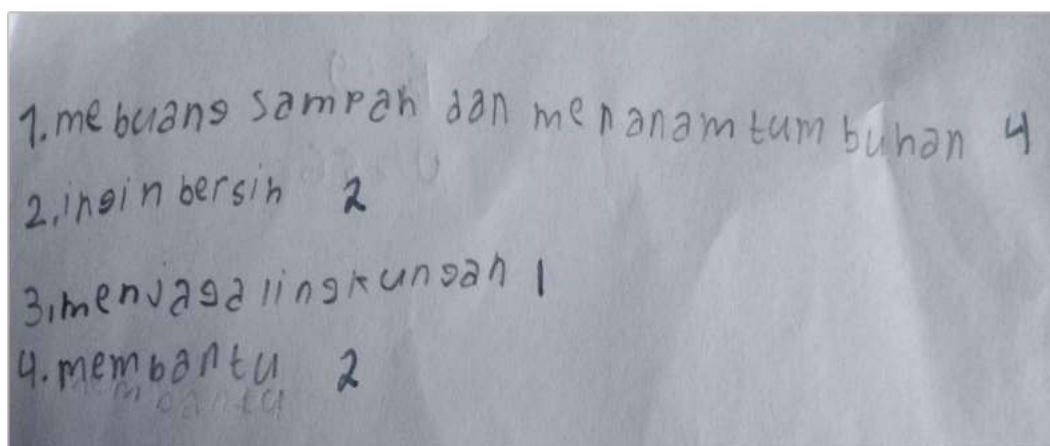 1. mebuang sampah dan menanam tumbuhan 4
2. ingin bersih 2
3. menjaga lingkungan 1
4. membantu 2